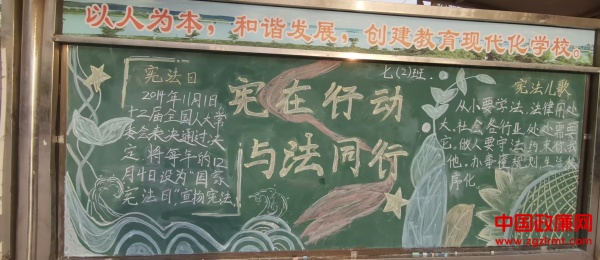 以人为本，和谐发展，创建教育现代化学校。
七(2)班.
宪法日
2014年11月1日,
十二届全国人大常
委会表决通过,决
定 将每年的12
月4日设为"国家
宪法日".宣扬宪法.
宪在行动
与法同行
宪法儿歌
从小要学法,法律用处
大,社会各行业处处需要
它,做人要守法
他,办事
序化.
中国政廉网
www.zgzlmt.com